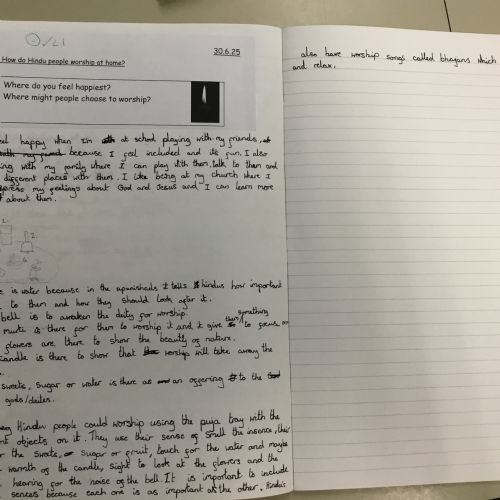 30.6.25
How do Hindu people worship at home?
Where do you feel happiest?
Where might people choose to worship?
eel happy when I'm at school playing with my friends,
because I feel included and its fun. I also
ing with my family where I can play with them, talk to them and
different places with them. I like being at my church where I
xpress my feelings about God and Jesus and I can learn more
about them.
1.
2.
e is water because in the upanishads it tells hindus how important
to them and how they should look after it.
bell is to awaken the deity for worship.
murti is there for them to worship it and it give them something to focus on
flowers are there to show the beauty of nature.
candle is there to show that worship will take away the
sweets, sugar or water is there as an offering to the
gods/deites.
Hindu people could worship using the puja tray with the
nt objects on it. They use their sense of smell the insence, their
r the sweets, or sugar or fruit, touch for the water and maybe
warmth of the candle, sight to look at the flowers and the
hearing for the noise of the bell. It is important to include
senses because each one is as important as the other. Hindus
also have worship songs called bhagans which
and relax.